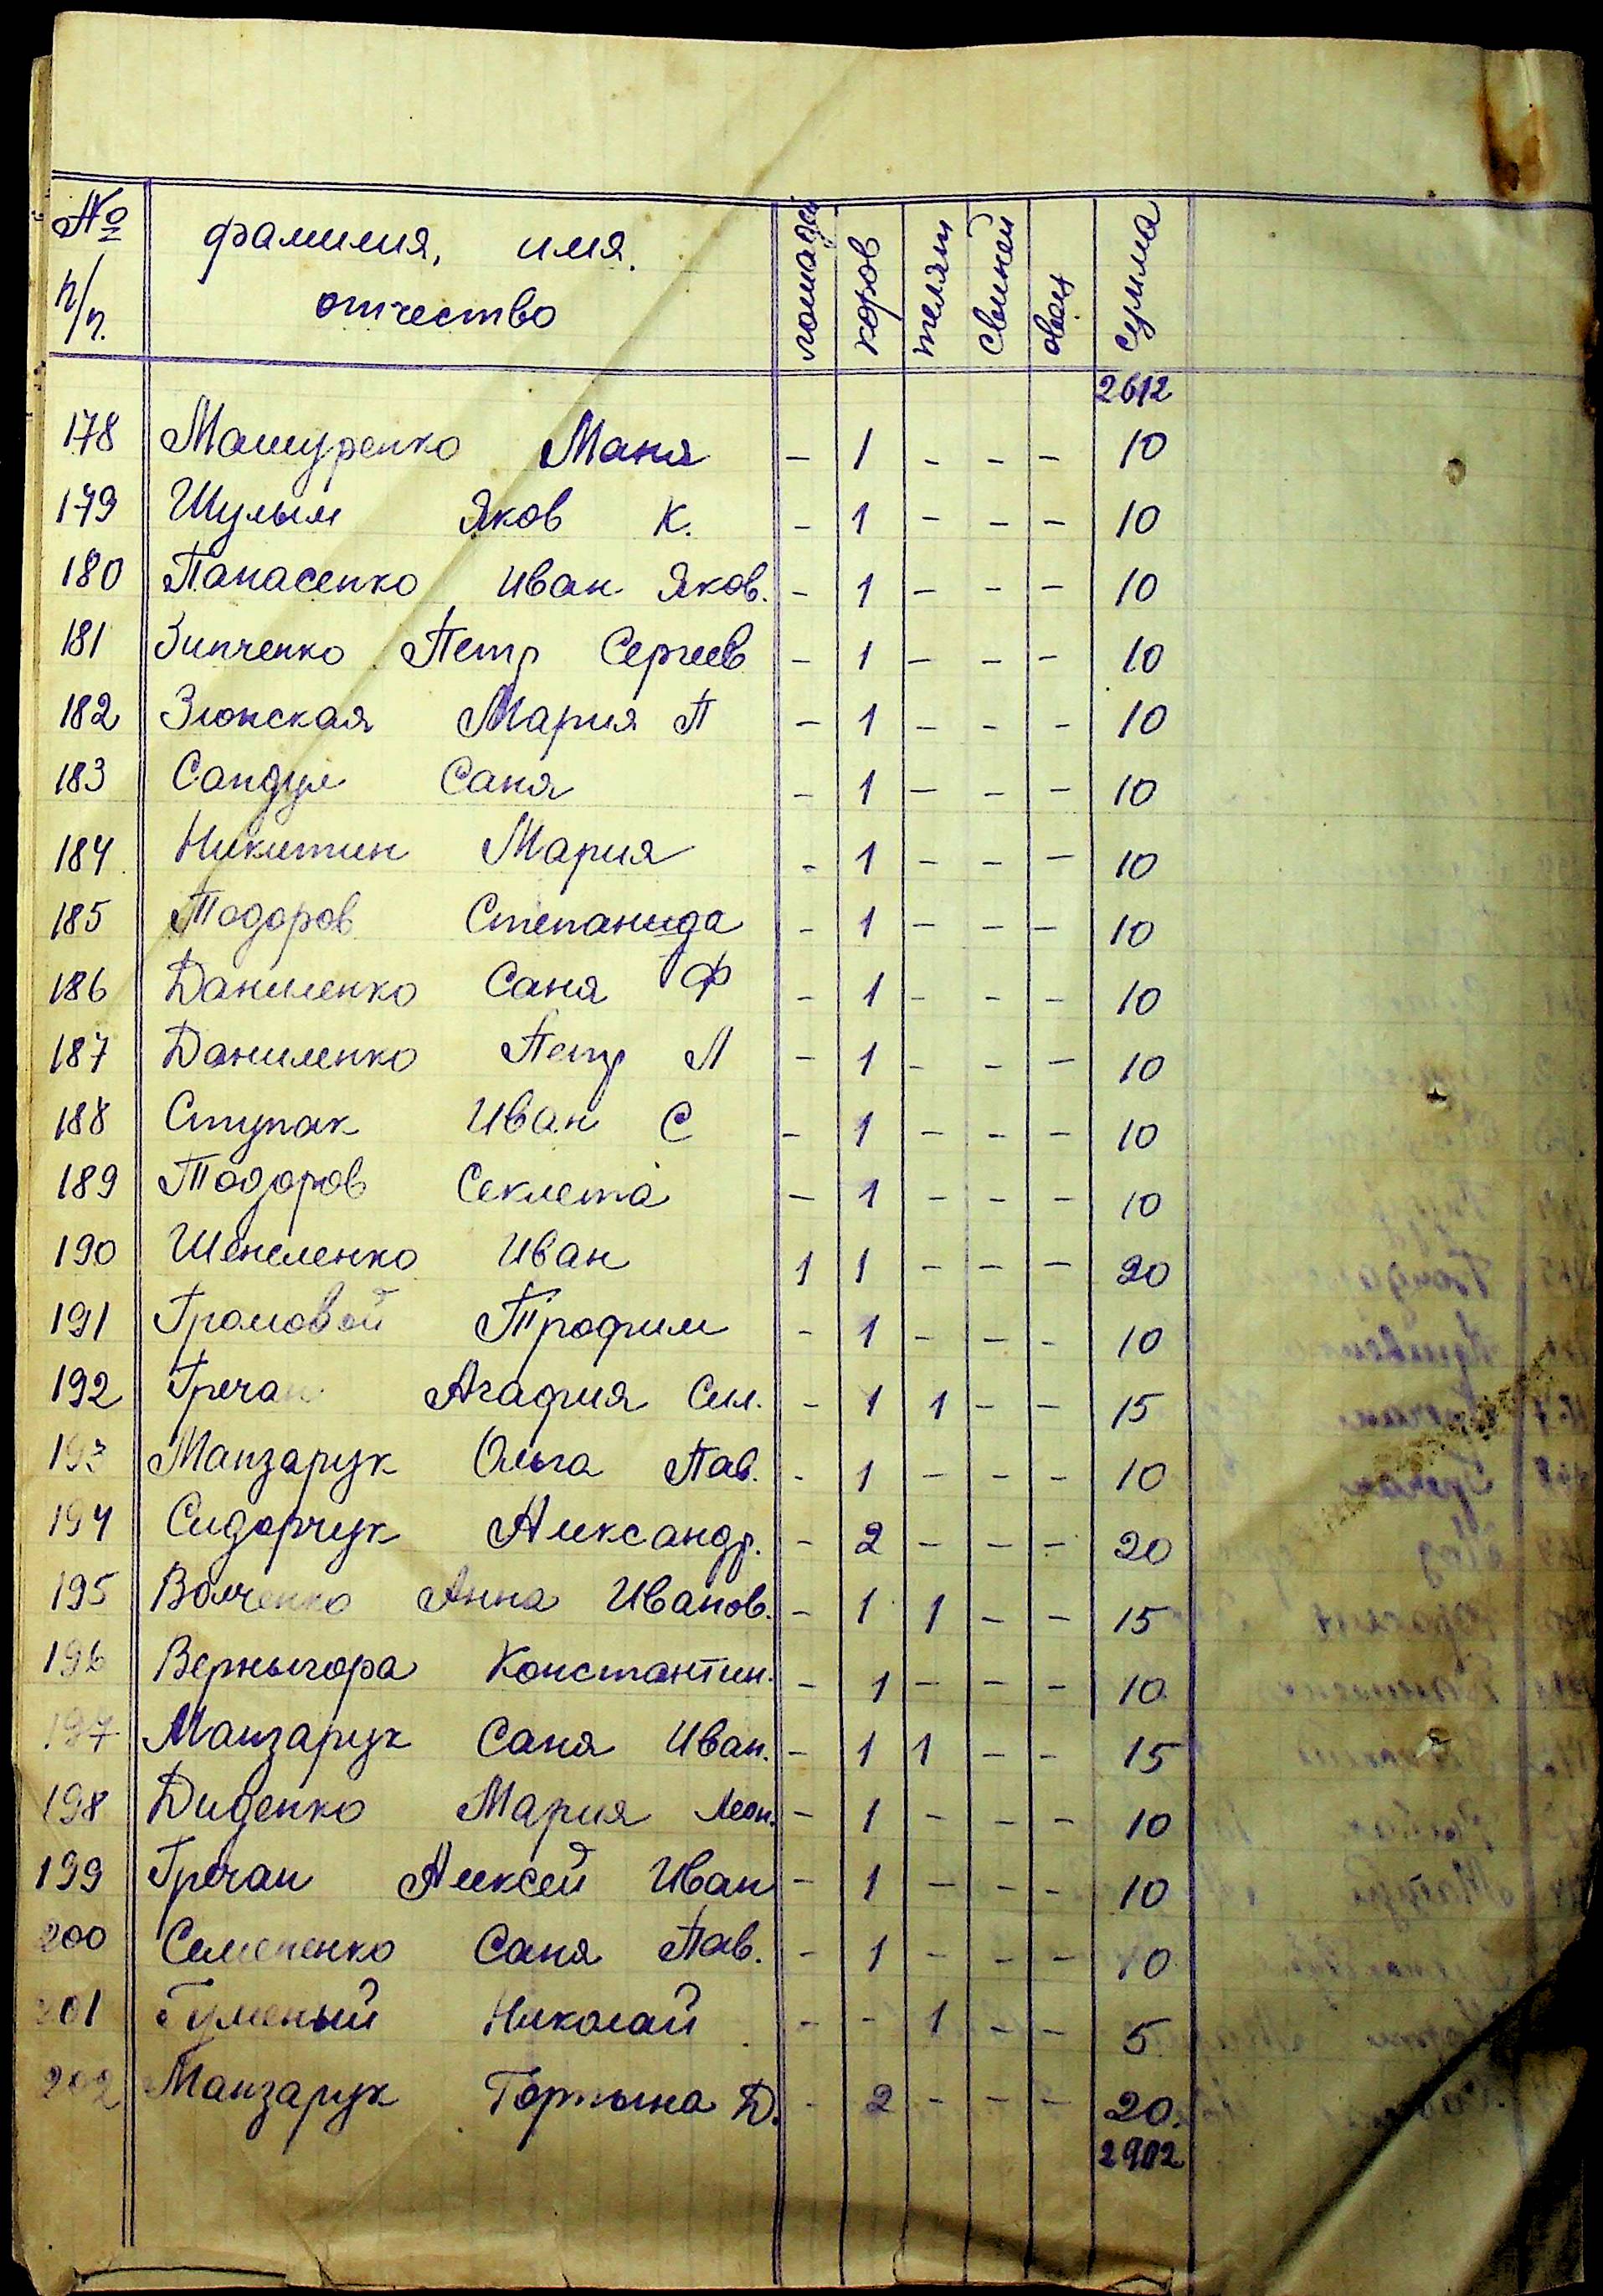 № п/п. фамилия, имя. отчество лошадей коров телят свиней овец сумма
2612
178 Машуренко Маня - 1 - - - 10
179 Шулым Яков К. - 1 - - - 10
180 Панасенко Иван Яков. - 1 - - - 10
181 Зинченко Петр Сергеев - 1 - - - 10
182 Зионская Мария П - 1 - - - 10
183 Сандул Саня - 1 - - - 10
184 Никитин Мария - 1 - - - 10
185 Тодоров Степанида - 1 - - - 10
186 Даниленко Саня Ф - 1 - - - 10
187 Даниленко Петр Л - 1 - - - 10
188 Ступак Иван С - 1 - - - 10
189 Тодоров Секлета - 1 - - - 10
190 Иван 1 1 - - - 20
191 Громовой Трофим - 1 - - - 10
192 Гречан Агафия Сил. - 1 1 - - 15
193 Манзарук Ольга Пав. - 1 - - - 10
194 Сидорчук Александр. - 2 - - - 20
195 Волченко Анна Иванов. - 1 1 - - 15
196 Вернигора Константин. - 1 - - - 10
197 Манзарук Саня Иван. - 1 1 - - 15
198 Диденко Мария Леон. - 1 - - - 10
199 Гречан Алексей Иван - 1 - - - 10
200 Семененко Саня Пав. - 1 - - - 10
201 Гуменый Николай - - 1 - - 5
202 Манзарук Горпына Д. - 2 - - - 20.
2902